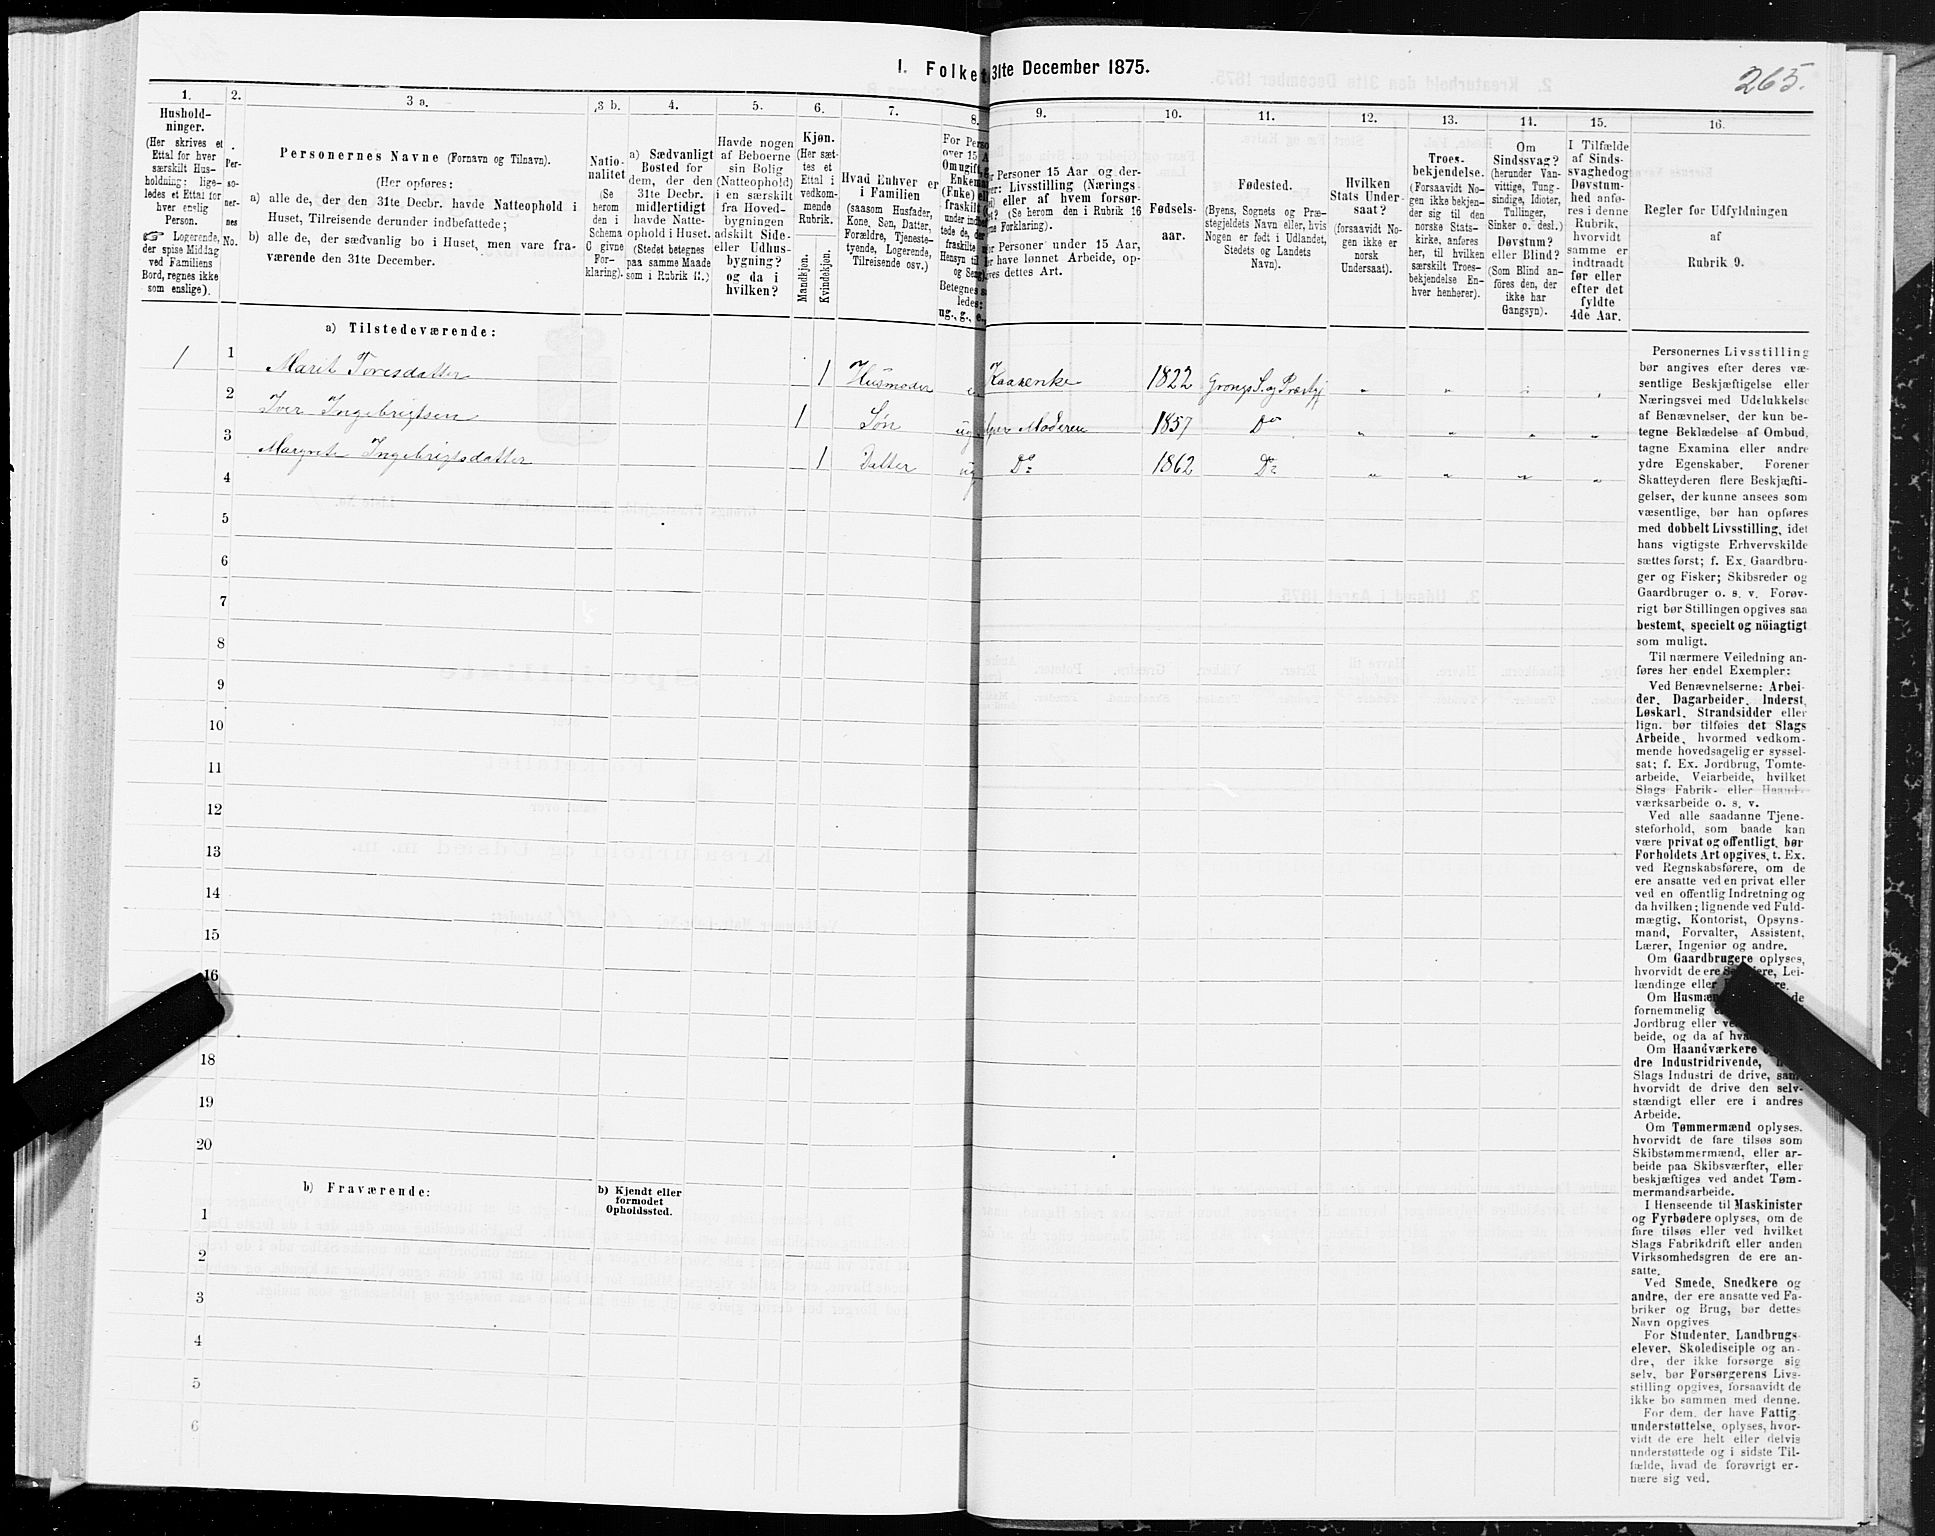 1. Folket 31te December 1875.
265.
1.
Hushold-
ninger.
(Her skrives et
Ettal for hver
særskilt Hus-
holdning; lige-
ledes et Ettal for
hver enslig
Person.
☞ Logerende,
der spise Middag
ved Familiens
Bord, regnes ikke
som enslige).
2.
Per-
so-
ner-
nes
No.
3 a.
Personernes Navne (Fornavn og Tilnavn).
(Her opføres:
a) alle de, der den 31te Decbr. havde Natteophold i
Huset, Tilreisende derunder indbefattede;
b) alle de, der sædvanlig bo i Huset, men vare fra-
værende den 31te December.
3 b.
Natio-
nalitet
(Se
herom
den i
Schema
C givne
For-
klaring).
4.
a) Sædvanligt
Bosted for
dem, der den
31te Decbr.
midlertidigt
havde Natte-
ophold i Huset.
(Stedet betegnes
paa samme Maade
som i Rubrik 11.)
5.
Havde nogen
af Beboerne
sin Bolig
(Natteophold)
i en særskilt
fra Hoved-
bygningen
adskilt Side-
eller Udhus-
bygning?
og da i
hvilken?
6.
Kjøn.
(Her sæt-
tes et
Ettal i
vedkom-
mende
Rubrik.
Mandkjøn.
Kvindekjøn.
7.
Hvad Enhver er
i Familien
(saasom Husfader,
Kone, Søn, Datter,
Forældre, Tjeneste-
tyende, Logerende,
Tilreisende osv.)
8.
For Perso
over 15 A
Om ugift,
Enkema
(Enke) el
fraskilt
under indb
tede de, de
fraskilte
Hensyn til
og Seng
Betegnes s
ledes:
ug., g., e.,
9.
r Personer 15 Aar og der-
er: Livsstilling (Nærings
ei) eller af hvem forsør-
et? (Se herom den i Rubrik 16
ne Forklaring).
r Personer under 15 Aar,
er have lønnet Arbeide, op-
ives dettes Art.
10.
Fødsels-
aar.
11.
Fødested.
(Byens, Sognets og Præ-
stegjeldets Navn eller, hvis
Nogen er født i Udlandet,
Stedets og Landets
Navn).
12.
Hvilken
Stats Under-
saat?
(forsaavidt No-
gen ikke er
norsk
Undersaat).
13.
Troes-
bekjendelse.
(Forsaavidt No-
gen ikke bekjen-
der sig til den
norske Stats-
kirke, anføres
her, til hvilken
særskilt Troes-
bekjendelse En-
hver henhører).
14.
Om
Sindssvag?
(herunder Van-
vittige, Tung-
sindige, Idioter,
Tullinger,
Sinker o. desl.)
Døvstum?
eller Blind?
(Som Blind an-
føres den, der
ikke har
Gangsyn).
15.
I Tilfælde
af Sinds-
svaghed og
Døvstum-
hed anfø-
res i denne
Rubrik,
hvorvidt
samme er
indtraadt
før eller
efter det
fyldte
4de Aar.
16.
Regler for Udfyldningen
af
Rubrik 9.
a) Tilstedeværende:
1 1 Marit Toresdatter 1 Husmoder e Kaarenke 1822 Grongs S. og Præstgj " " " "
2 Iver Ingebrigtsen 1 Søn ug. Moderen 1857 Do " " " "
3 Margrete Ingebrigtsdatter 1 Datter ug Do 1862 Do " " " "
4
5
6
7
8
9
10
11
12
13
14
15
16
18
19
20
b) Fraværende:
b) Kjendt eller
formodet
Opholdssted.
1
2
3
4
5
6
Personernes Livsstilling
bør angives efter deres væ-
sentlige Beskjæftigelse eller
Næringsvei med Udelukkelse
af Benævnelser, der kun be-
tegne Beklædelse af Ombud,
tagne Examina eller andre
ydre Egenskaber. Forener
Skatteyderen flere Beskjæfti-
gelser, der kunne ansees som
væsentlige, bør han opføres
med dobbelt Livsstilling, idet
hans vigtigste Erhvervskilde
sættes først; f. Ex. Gaardbru-
ger og Fisker; Skibsreder og
Gaardbruger o. s. v. Forøv-
rigt bør Stillingen opgives saa
bestemt, specielt og nöiagtigt
som muligt.
Til nærmere Veiledning an-
føres her endel Exempler:
Ved Benævnelserne: Arbei-
der, Dagarbeider, Inderst,
Løskarl, Strandsidder eller
lign. bør tilføies det Slags
Arbeide, hvormed vedkom-
mende hovedsagelig er syssel-
sat; f. Ex. Jordbrug, Tomte-
arbeide, Veiarbeide, hvilket
Slags Fabrik- eller Haand-
værksarbeide o. s. v.
Ved alle saadanne Tjene-
steforhold, som baade kan
være privat og offentligt, bør
Forholdets Art opgives, t. Ex.
ved Regnskabsførere, om de
ere ansatte ved en privat eller
ved en offentlig Indretning og
da hvilken; lignende ved Fuld-
mægtig, Kontorist, Opsyns-
mand, Forvalter, Assistent,
Lærer, Ingeniør og andre.
Om Gaardbrugere oplyses,
hvorvidt de ere Se ere, Lei-
lændinge eller re.
Om Husmæn de
fornemmelig e
Jordbrug eller ve
beide, og da af hva
Om Haandværkere
dre Industridrivende,
Slags Industri de drive, sam
hvorvidt de drive den selv-
stændigt eller ere i andres
Arbeide.
Om Tømmermænd oplyses,
hvorvidt de fare tilsøs som
Skibstømmermænd, eller ar-
beide paa Skibsværfter, eller
beskjæftiges ved andet Tøm-
mermandsarbeide.
I Henseende til Maskinister
og Fyrbødere oplyses, om de
fare tilsøs eller ved hvilket
Slags Fabrikdrift eller anden
Virksomhedsgren de ere an-
satte.
Ved Smede, Snedkere og
andre, der ere ansatte ved Fa-
briker og Brug, bør dettes
Navn opgives
For Studenter, Landbrugs-
elever, Skoledisciple og an-
dre, der ikke forsørge sig
selv, bør Forsørgerens Livs-
stilling opgives, forsaavidt de
ikke bo sammen med denne.
For dem, der have Fattig
understøttelse, oplyses, hvor-
vidt de ere helt eller delvis
understøttede og i sidste Til-
fælde, hvad de forøvrigt er-
nære sig ved.